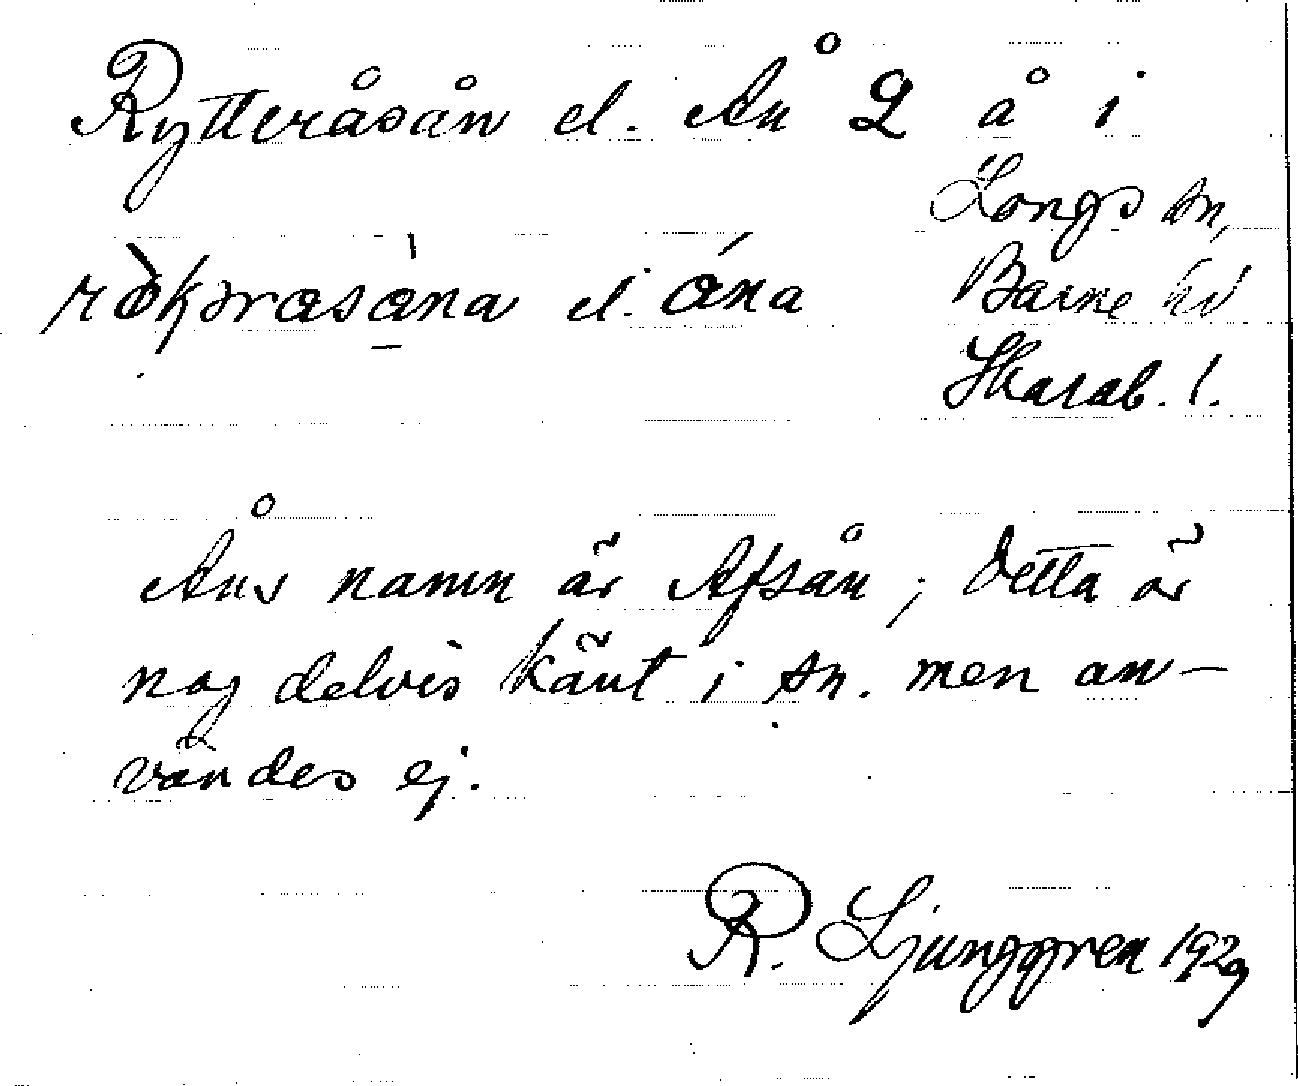 Rytteråsån el. Ån 2 å i
Längs sn,
Barne hd
Skarab. l.
el. ána
Åns namn är Afsån; detta är
nog delvis känt i sn. men an-
vändes ej.
R. Ljunggren 1929